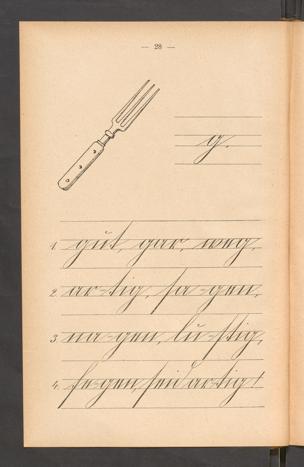 — 28 —
g.
1. gut, gar, weg.
2. ar-tig, sa-gen,
3. na-gen, lu-stig,
4. fe-gen, seid artig!